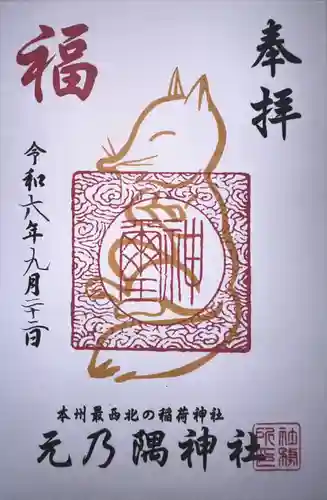 奉拝
福
令和六年九月二十二日
本州最西北の稲荷神社
元乃隅神社